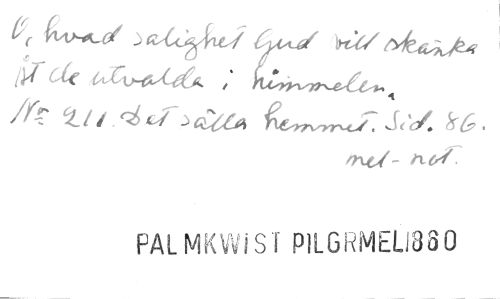 O, hvad salighet Gud vill skänka
åt de utvalda i himmelen.
No 211. Det sälla hemmet. Sid. 86.
mel-not.
PALMKWIST PILGRMEL1860